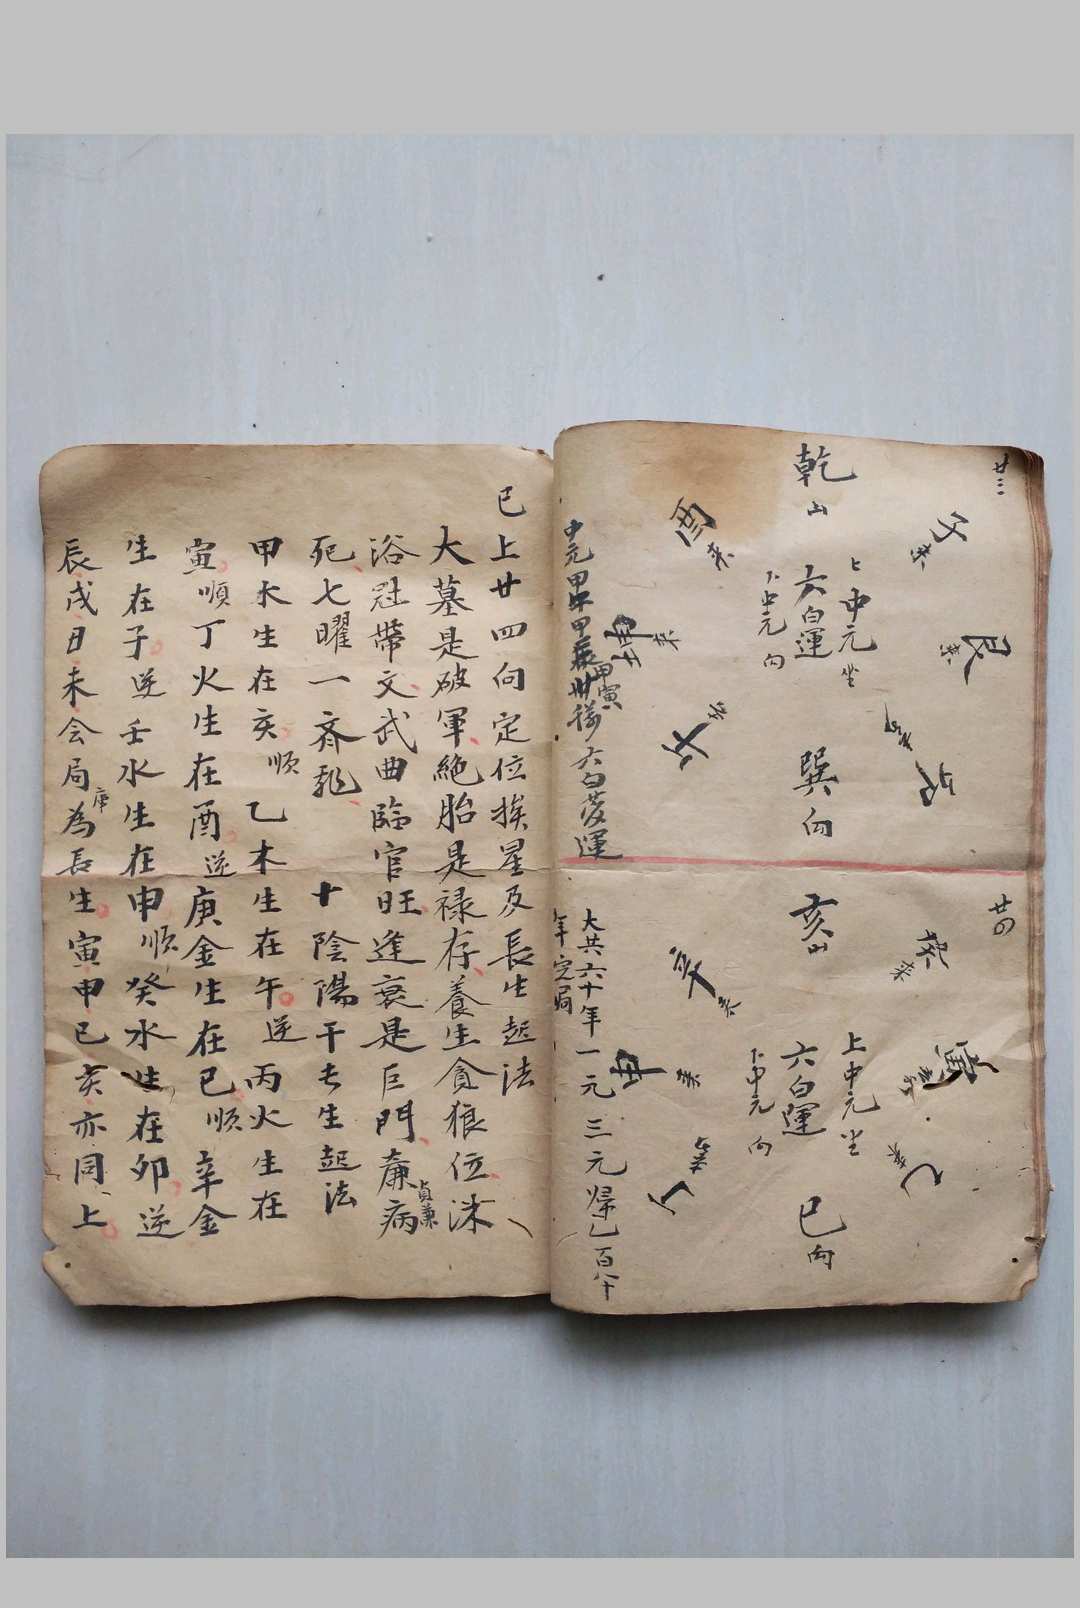 廿三
子来
艮来
乾山
上中元坐
六白運
下中元向
巽向
酉来
坤来
午来
中元甲午甲辰甲寅卅年
六白發運
廿四
癸来
寅来
乙来
亥山
上中元坐
六白運
下中元向
巳向
辛来
申来
丁来
大共六十年一元三元歸乙百八十
年完局
巳上廿四向定位挨星及長生起法
大墓是破軍絶胎是禄存養生貪狼位沐
浴冠帶文武曲臨官旺逢衰是巨門廉病
貞兼
死七曜一齊輪 十陰陽干長生起法
甲木生在亥順乙木生在午逆丙火生在
寅順丁火生在酉逆庚金生在巳順辛金
生在子逆壬水生在申順癸水生在卯逆
辰戌丑未会局庫為長生寅申巳亥亦同上